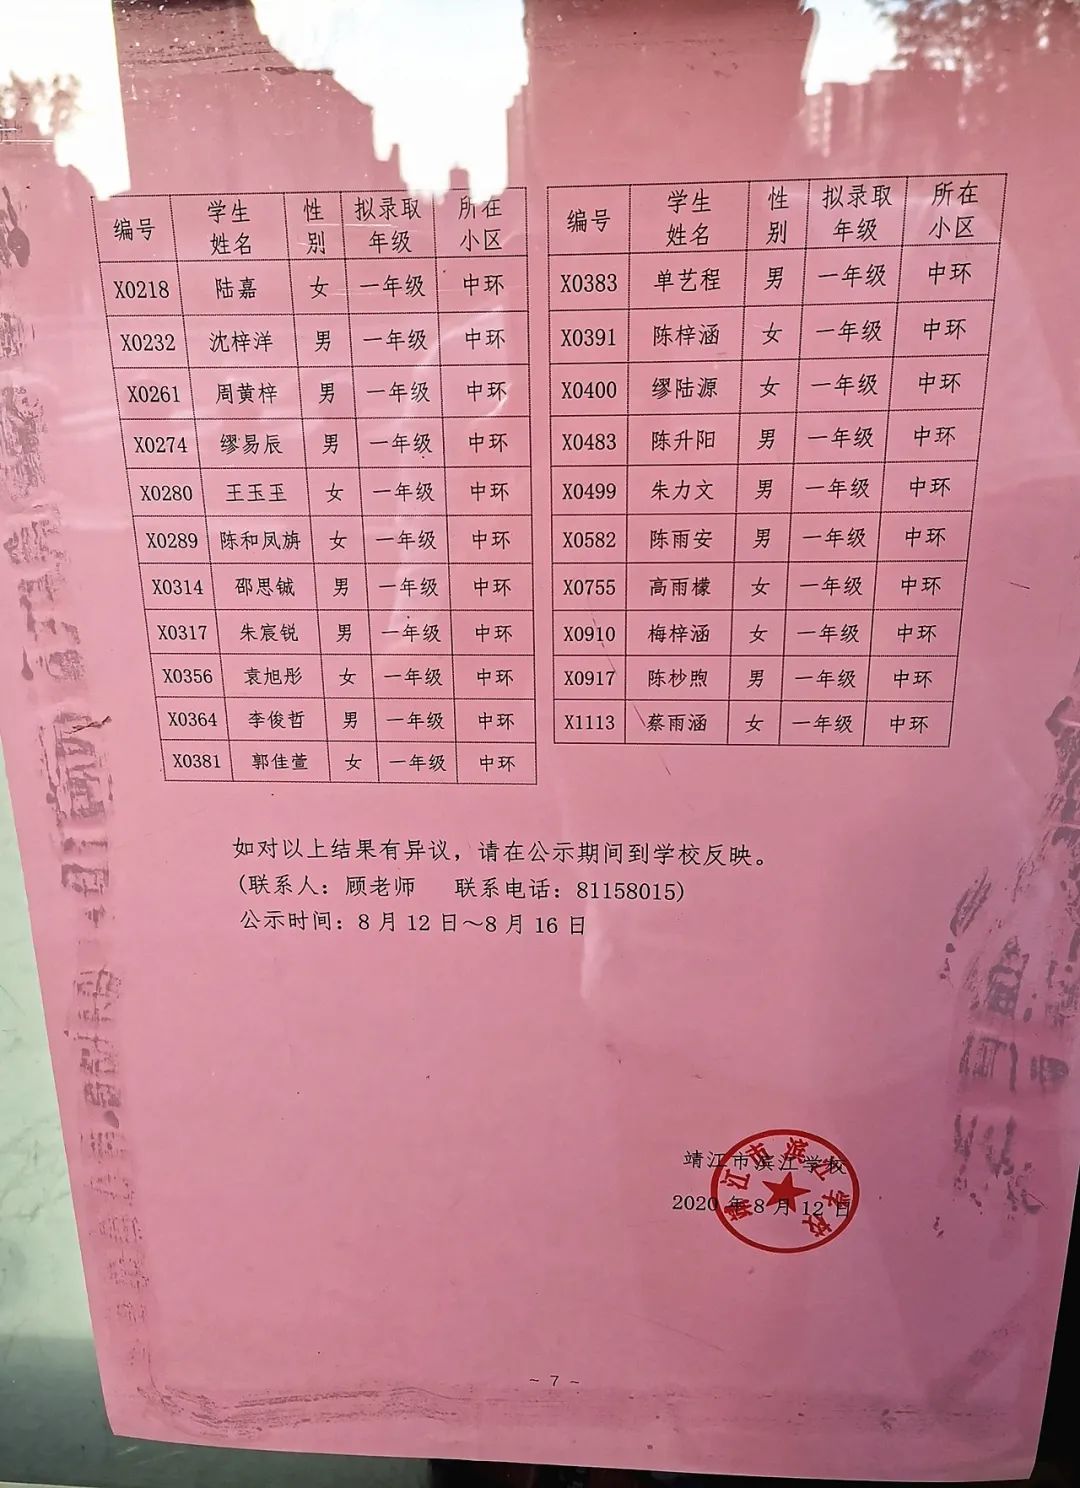 编号 学生姓名 性别 拟录取年级 所在小区
X0218 陆嘉 女 一年级 中环
X0232 沈梓洋 男 一年级 中环
X0261 周黄梓 男 一年级 中环
X0274 缪易辰 男 一年级 中环
X0280 王玉玊 女 一年级 中环
X0289 陈和凤旃 女 一年级 中环
X0314 邵思铖 男 一年级 中环
X0317 朱宸锐 男 一年级 中环
X0356 袁旭彤 女 一年级 中环
X0364 李俊哲 男 一年级 中环
X0381 郭佳萱 女 一年级 中环
编号 学生姓名 性别 拟录取年级 所在小区
X0383 单艺程 男 一年级 中环
X0391 陈梓涵 女 一年级 中环
X0400 缪陆源 女 一年级 中环
X0483 陈升阳 男 一年级 中环
X0499 朱力文 男 一年级 中环
X0582 陈雨安 男 一年级 中环
X0755 高雨檬 女 一年级 中环
X0910 梅梓涵 女 一年级 中环
X0917 陈杪煦 男 一年级 中环
X1113 蔡雨涵 女 一年级 中环
如对以上结果有异议，请在公示期间到学校反映。
(联系人：顾老师 联系电话：81158015)
公示时间：8月12日～8月16日
靖江市滨江学校
2020年8月12日
靖江市滨江学校
~ 7 ~